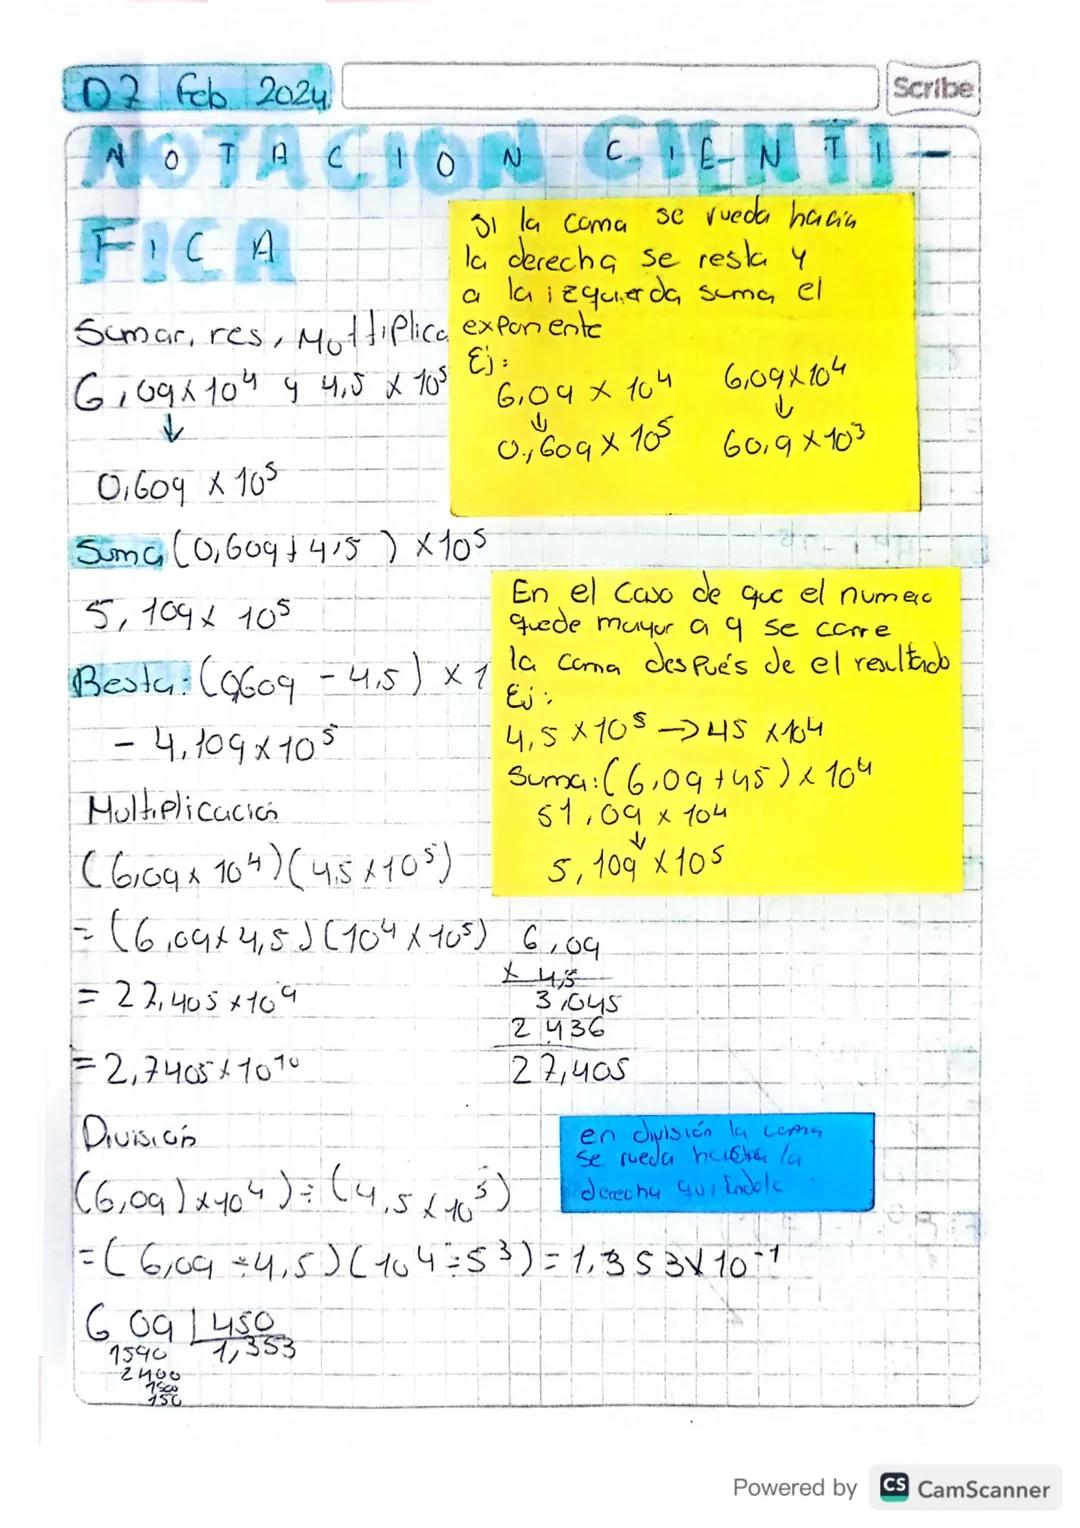 07 Feb 2024
Scribe
NOTACION CIENTI-
FICA
Si la coma se rueda hacia
la derecha se resta y
a la izquierda suma el
exponente
Ej:
6,09 x 10⁴ 6,09x10⁴
↓ ↓
0,609 x 10⁵ 60,9 x 10³
Sumar, res, Multiplica
6,09x10⁴ y 4,5 x 10⁵
↓
0,609 x 10⁵
Suma (0,609+4,5) x10⁵
5,109x 10⁵
Resta: (0,609 - 4,5) x 1
- 4,109x10⁵
En el caso de que el numero
quede mayor a 9 se corre
la coma después de el resultado
Ej:
4,5 x10⁵ → 45 x10⁴
Suma: (6,09 +45) x 10⁴
51,09 x 10⁴
↓
5,109 x10⁵
Multiplicación
(6,09x 10⁴)(4,5 x10⁵)
= (6,09x4,5)(10⁴ x 10⁵)
= 27,405 x10⁹
= 2,7405x10¹⁰
6,09
x 4,5
3,045
2 436
27,405
División
en división la coma
se rueda la
derecha
(6,09)x10⁴) ÷ (4,5 x 10⁵)
= (6,09 ÷4,5)(10 4÷5 ³) = 1,353x10⁻¹
6 09 | 450
1590 1,353
2400
1500
150
Powered by CS CamScanner